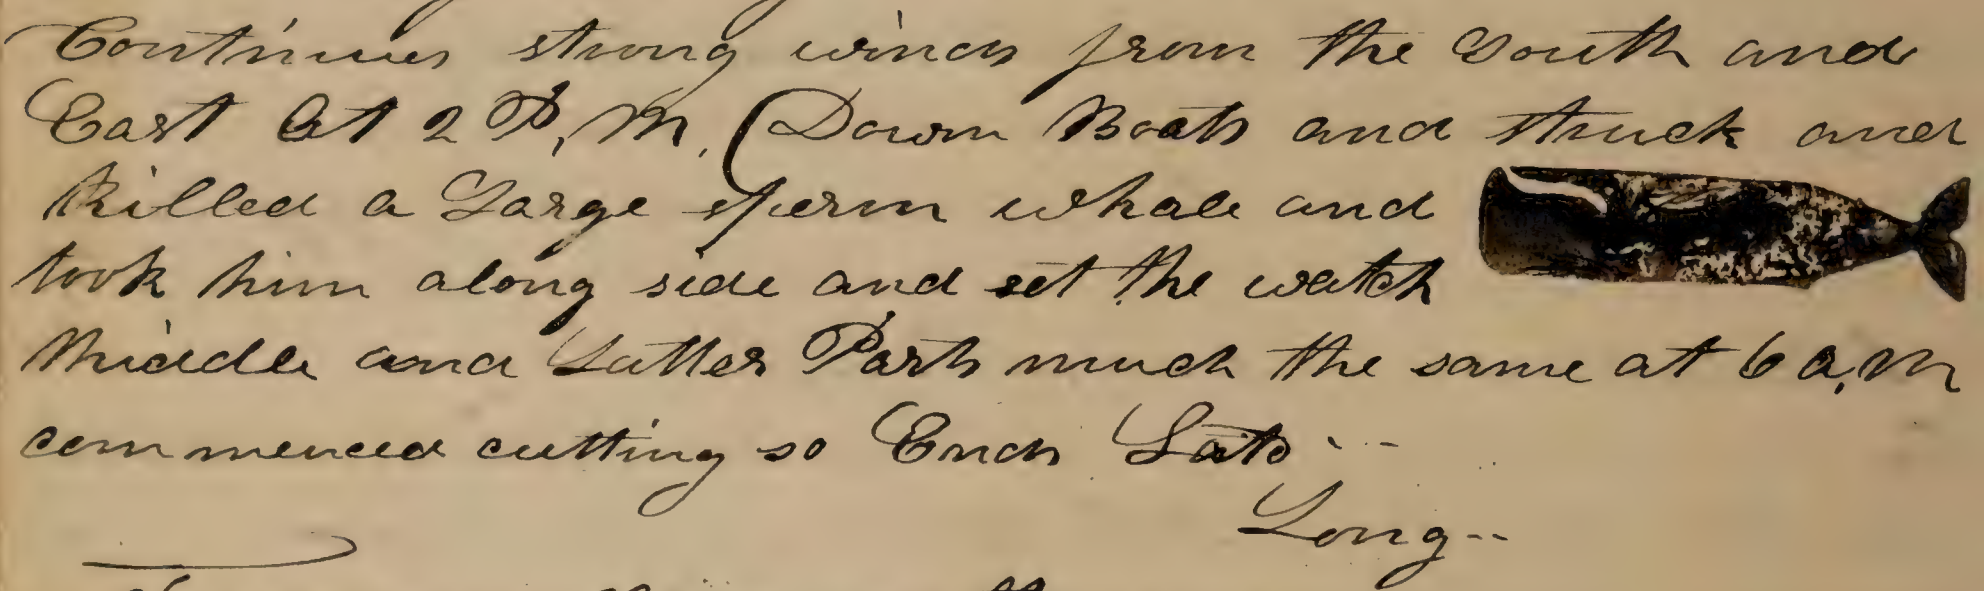 Continues strong winds from the South and
East At 2 P, M, Down Boats and struck and
Killed a Large sperm whale and
took him along side and set the watch
Middle and Latter Parts much the same at 6 a, m
commenced cutting so Ends Lato
Long